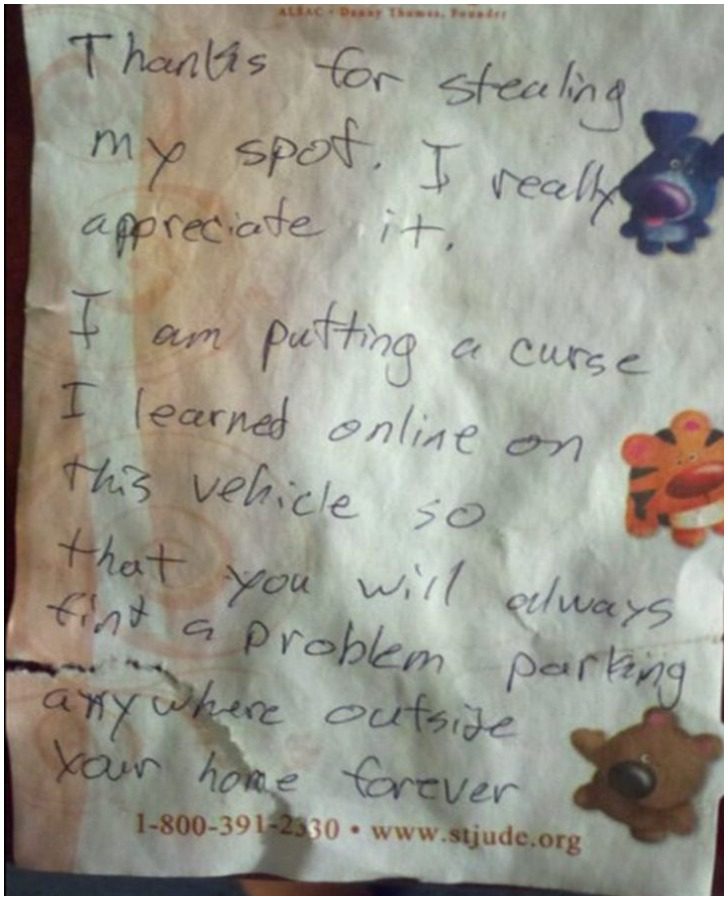 ALSAC • Danny Thomas, Founder
Thanks for stealing
my spot. I really
appreciate it.
I am putting a curse
I learned online on
this vehicle so
that you will always
find a problem parking
anywhere outside
your home forever
1-800-391-2330 • www.stjude.org